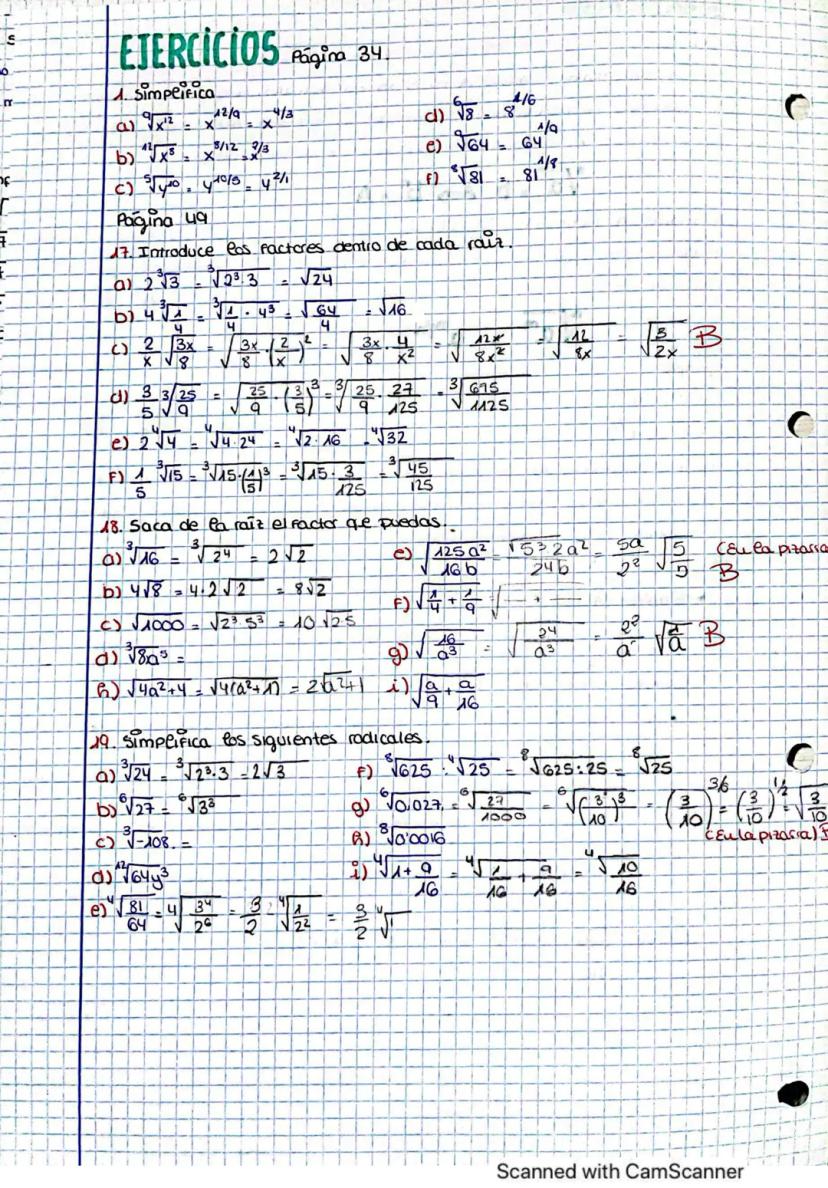 EJERCICIOS Página 34.
1. Simplifica
a) ⁹√x¹² = x^12/9 = x^4/3
b) ¹²√x⁸ = x^8/12 = x^2/3
c) ⁵√y¹⁰ = y^10/5 = y^2/1
d) ⁶√8 = 8^1/6
e) ⁹√64 = 64^1/9
f) ⁸√81 = 81^1/8
Página 49
17. Introduce los factores dentro de cada raíz.
a) 2 ³√3 = ³√2³·3 = √24
b) 4 ³√1/4 = ³√1/4 · 4³ = √64/4 = √16
c) 2/x √3x/8 = √3x/8 · (2/x)² = √3x/8 · 4/x² = √12x/8x² = √12/8x = √3/2x B
d) 3/5 ³√25/9 = √25/9 · (3/5)³ = ³√25/9 · 27/125 = ³√675/1125
e) 2 ⁴√4 = ⁴√4·24 = ⁴√2·16 = ⁴√32
f) 1/5 ³√15 = ³√15·(1/5)³ = ³√15 · 3/125 = ³√45/125
18. Saca de la raíz el factor que puedas.
a) ³√16 = ³√24 = 2√2
b) 4√8 = 4·2√2 = 8√2
c) √1000 = √2³·5³ = 10√25
d) ³√8a⁵ =
h) √4a²+4 = √4(a²+1) = 2√a²+1
e) √125a²/16b = √5³2a²/24b = 5a/2² √5/5 (En la pizarra
B
f) √1/4 + 1/9 √ +
g) √16/a³ = √24/a³ = 2²/a √1/a B
i) √a/9 + a/16
19. Simplifica los siguientes radicales.
a) ³√24 = ³√2³·3 = 2√3
b) ⁶√27 = ⁶√3³
c) ³√-108. =
d) ¹²√64y³
e) ⁴√81/64 = ⁴√3⁴/2⁶ = 3/2 - ⁴√1/2² = 3/2 ⁴√1
f) ⁸√625 : ⁴√25 = ⁸√625:25 = ⁸√25
g) ⁶√0,027 = ⁶√27/1000 = ⁶√(3/10)³ = (3/10)^3/6 = (3/10)^1/2 = √3/10
(En la pizarra) B
h) ⁸√0'0016
i) ⁴√1+9/16 = ⁴√1/16 + 9/16 = ⁴√10/16
Scanned with CamScanner